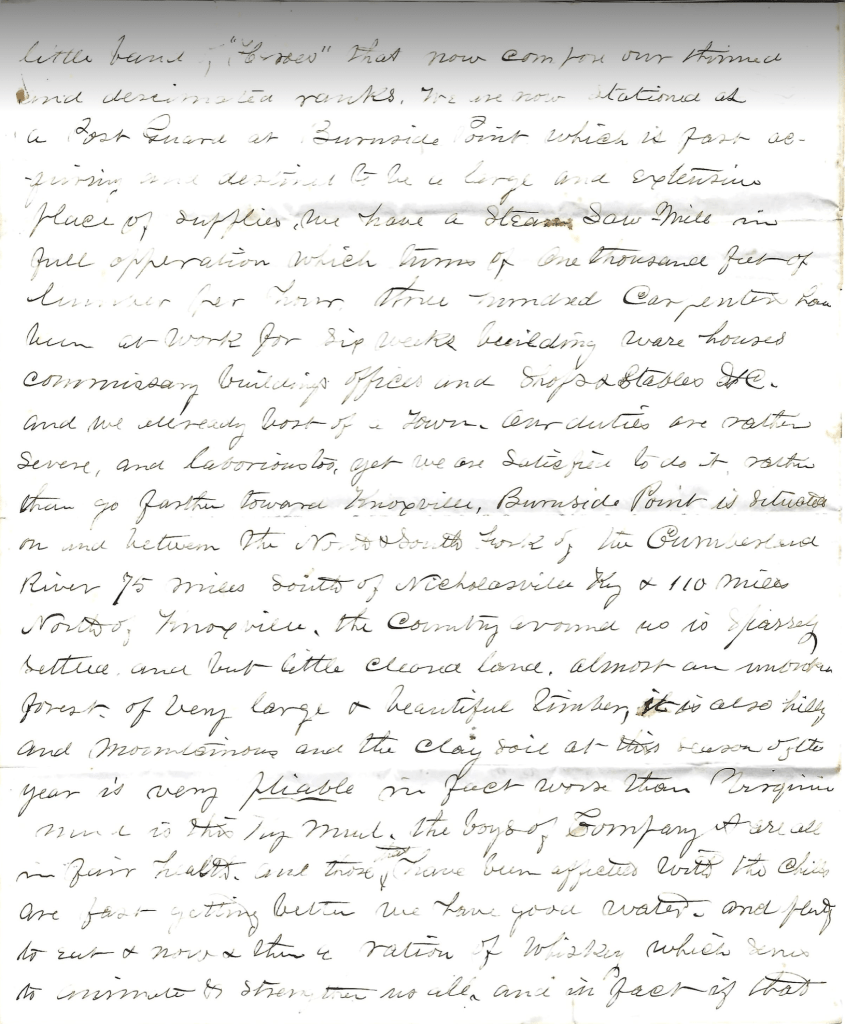 little band of "Heroes" that now compose our thinned
and descimated ranks. We are now stationed as
a Post Guard at Burnside Point which is fast ac-
-quiring and destined to be a large and extensive
place of supplies. We have a Steam Saw-Mill in
full opperation which turns of One thousand feet of
lumber per hour. three hundred Carpenters have
been at work for Six weeks building ware houses
commissary buildings offices and Shops & Stables &C.
and we allready bost of a Town. Our duties are rather
Severe, and laborious too, yet we are Satisfied to do it rather
than go farther toward Knoxville, Burnside Point is situated
on and between the North & South Fork of the Cumberland
River 75 miles South of Nicholasville Ky & 110 miles
North of Knoxville. the Country around us is Sparsely
settled and but little cleared land. almost an unbroken
forest of very large & beautiful timber, it is also hilly
and Mountainous and the clay soil at this season of the
year is very pliable in fact worse than Virginia
mud is this Ky Mud. the boys of Company A are all
in fair health. and those that have been affected with the Chills
are fast getting better we have good water and plenty
to eat & now & then a ration of Whiskey which serves
to animate & strengthen us all. and in fact if that